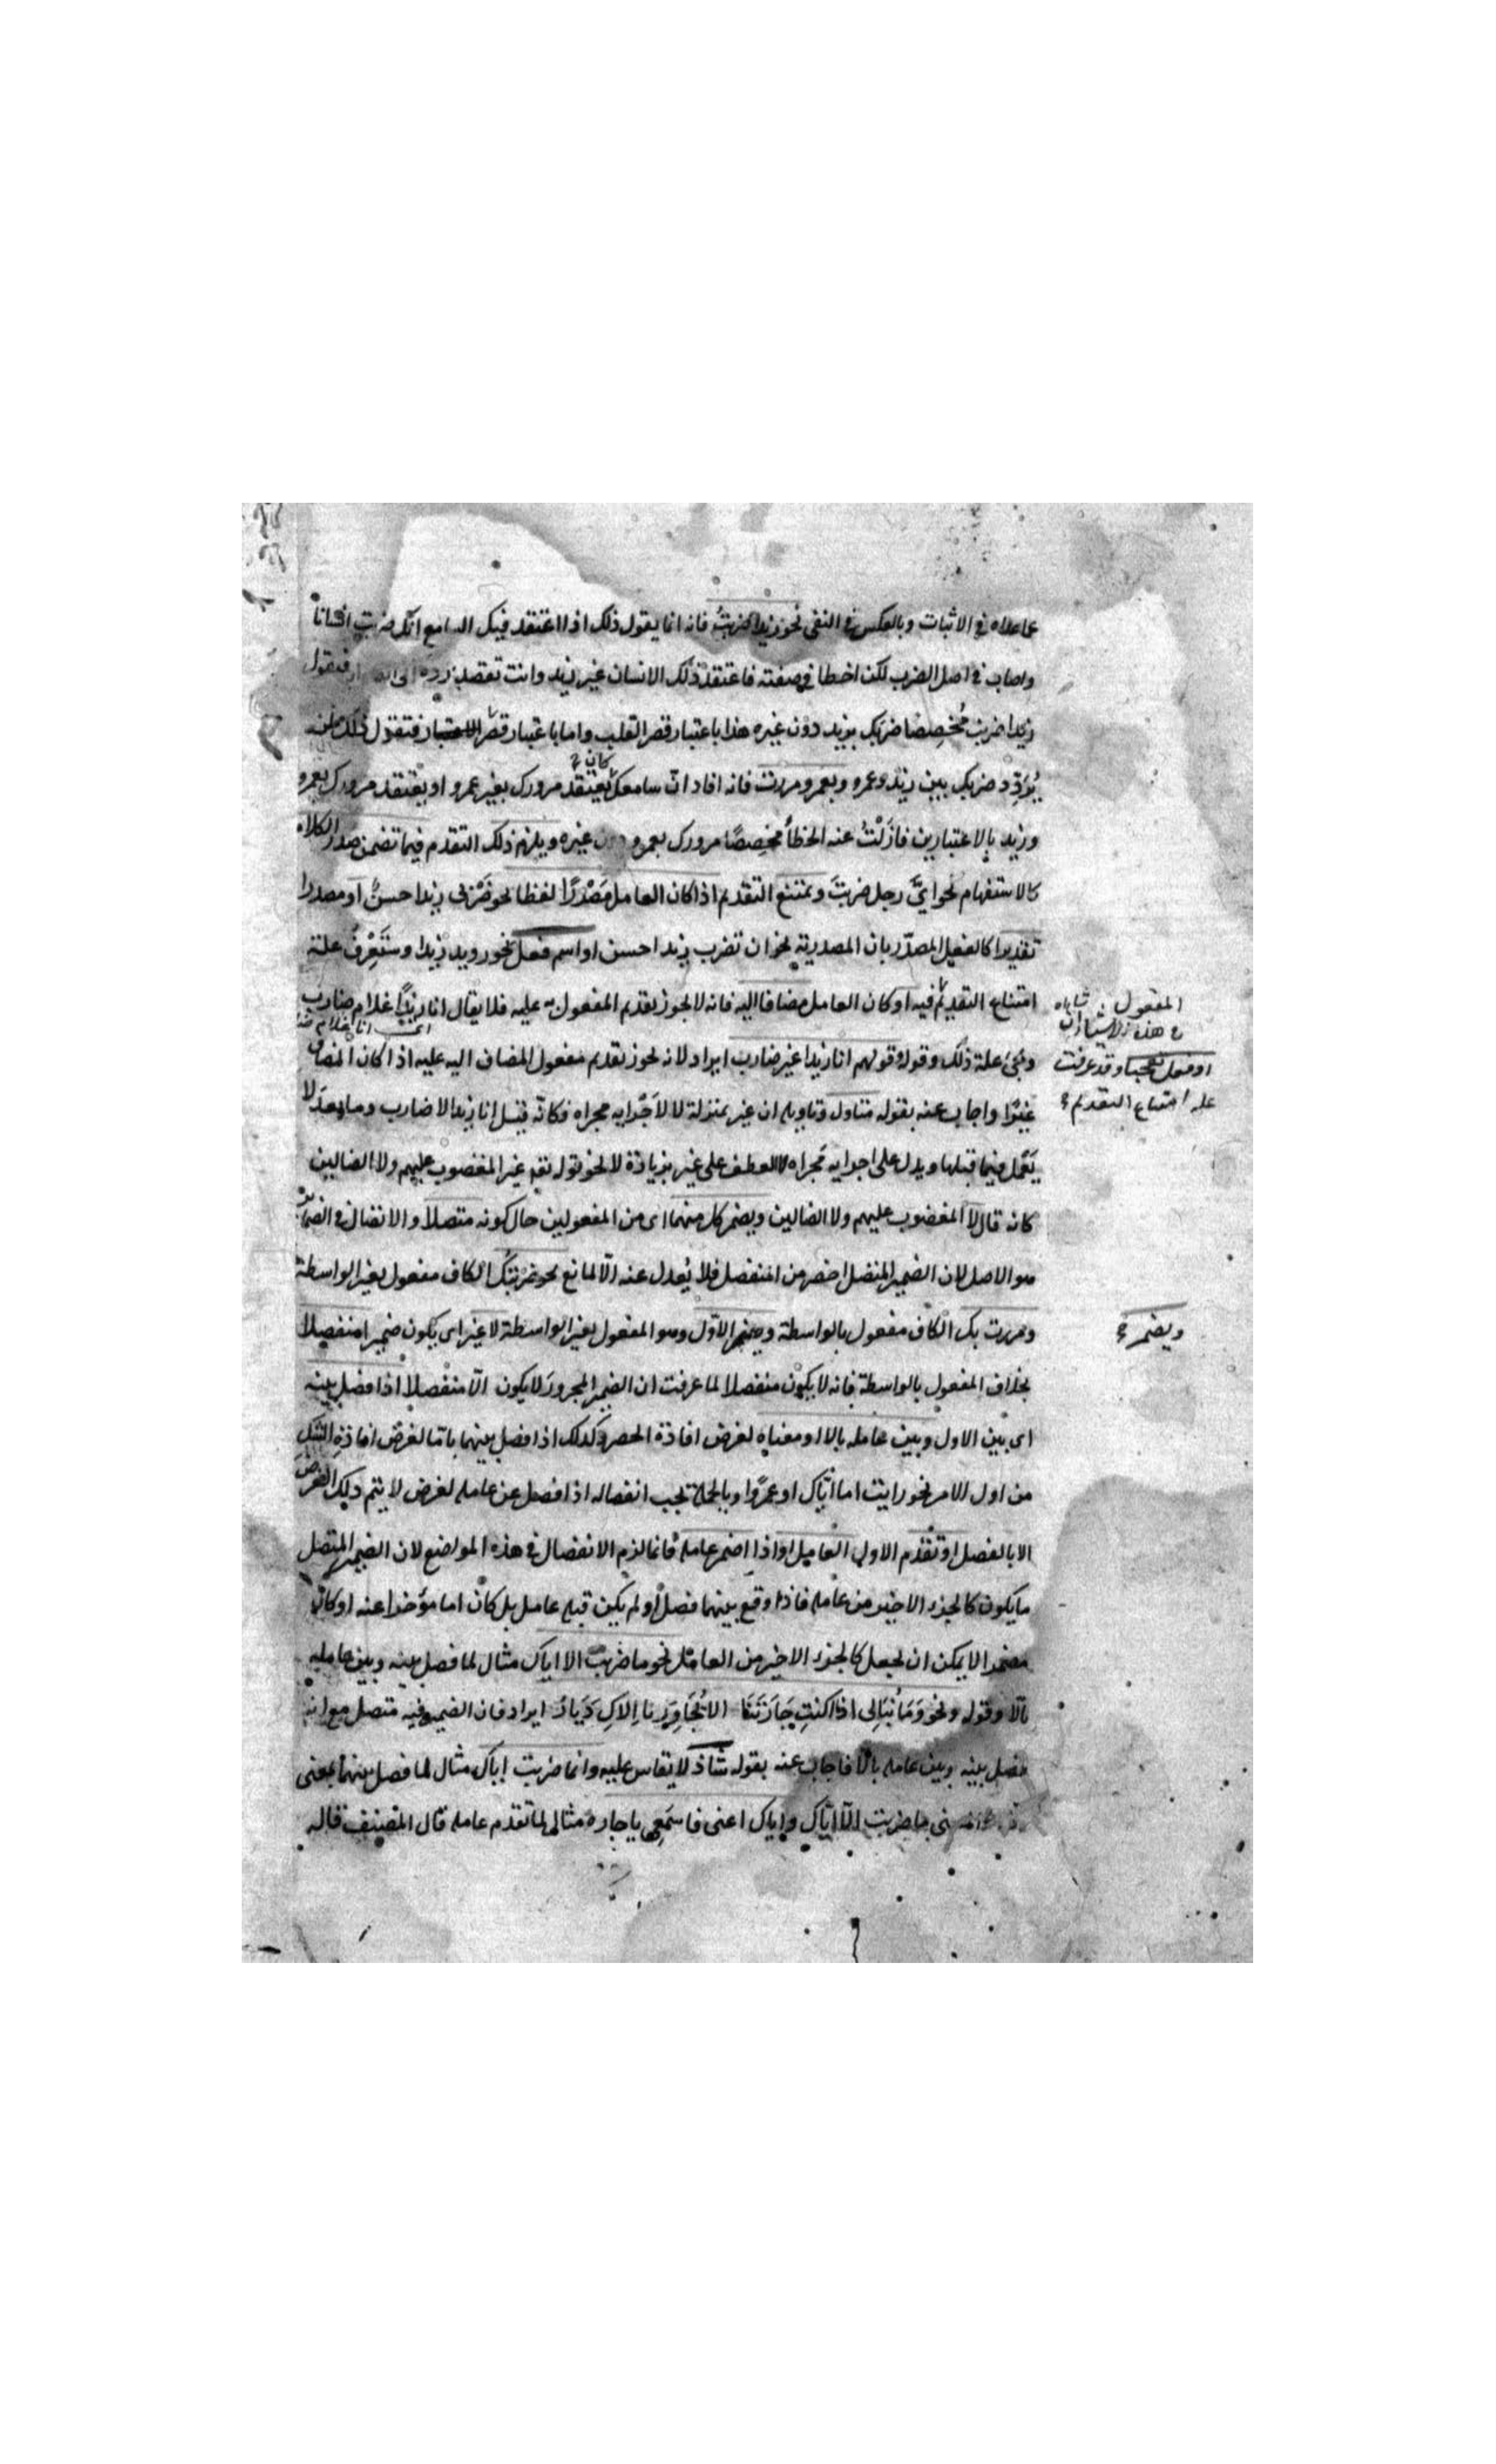 عما عداه في الاثبات وبالعكس في النفي نحو زيدا ضربتُ فانه انما يقول ذلك اذا اعتقد فيك السامع انك ضربت انسانا
واصاب في اصل الضرب لكن اخطا في صفته فاعتقد ذلك الانسان غير زيد وانت تقصد رده الى فتقول
زيدا ضربت مُخصِصا ضربك بزيد دون غيره هذا باعتبار قصر القلب واما باعتبار قصر فتقول ذلك لمن
يُردِّد ضربك بين زيد وعمرو وبعمرو مررت فانه افاد انّ سامعك كان يعتقد مرورك بغير عمرو او يعتقد مرورك بعمرو
وزيد بالاعتبارين فازَلْتُ عنه الخطأ مخصِصًا مرورك بعمرو دون غيره ويلزم ذلك التقدم فيما تضمن صدر الكلام
كالاستفهام نحو ايَّ رجل ضربتَ ويمتنع التقديم اذا كان العامل مَصْدرًا لفظا نحو ضَرْبى زيدا حسنٌ او مصدرا
تقديرا كالفعل المصدّر بان المصدرية نحو ان تضرب زيدا حسن او اسم فعل نحو رويد زيدا وستَعْرِفُ علة
امتناع التقديم فيه او كان العامل مضافا اليه فانه لا يجوز تقديم المفعول به عليه فلا يقال انا زيدًا غلام ضارب
اى انا غلام
وتجئ علة ذلك وقوله وقولهم انا زيدا غير ضارب ايراد لانه يجوز تقديم مفعول المضاف اليه عليه اذا كان المضاف
غيرًا واجاب عنه بقوله متناول وتاويله ان غير بمنزلة لا لاَجْرايه مجراه فكانّه قيل انا زيدا لا ضارب وما بعد لا
يَعْمل فيما قبلها ويدل على اجرايه مَجراه العطف على غير بزيادة لا نحو قوله تعه غير المغضوب عليهم ولا الضالين
كانه قال لا المغضوب عليهم ولا الضالين ويضمر كل منهما اى من المفعولين حال كونه متصلا والاتصال في الضمائر
هو الاصل لان الضمير المتصل اخصر من المنفصل فلا يُعدل عنه الّا لمانع نحو ضربتك الكاف مفعول بغير الواسطة
ومررت بك الكاف مفعول بالواسطة ويضمر الاوّل وهو المفعول بغير الواسطة لا غير اى يكون ضميرا منفصلا
بخلاف المفعول بالواسطة فانه لا يكون منفصلا لما عرفت ان الضمير المجرورَ لا يكون الّا متصلا اذا فصل بينه
اى بين الاول وبين عامله بالا او معناه لغرض افادة الحصر وكذلك اذا فصل بينهما باما لغرض افادة الشك
من اول الامر نحو رايت اما اياك او عمرًا وبالجملة يجب انفصاله اذا فصل عن عامله لغرض لا يتم ذلك الغرض
الا بالفصل او تقدم الاول العامل او اذا اضمر عامله فانما لزم الانفصال في هذه المواضع لان الضمير المتصل
ما يكون كالجزء الاخير من عامله فاذا وقع بينهما فصل او لم يكن قبله عامل بل كان اما مؤخرا عنه او كان
مضمرا لا يمكن ان يجعل كالجزء الاخير من العامل نحو ما ضربت الا اياك مثال لما فصل بينه وبين عامله
بالا وقوله ونحو وَمَا نُبَالى اذا كنتِ جَارَتَنَا الا يُجَاوِرَنا اِلاكِ دَيارُ ايراد فان الضمير فيه متصل مع انه
فصل بينه وبين عامله بالا فاجاب عنه بقوله شاذ لا يقاس عليه وانما ضربت اياك مثال لما فصل بينهما بمعنى
ما ضربت الّا ايّاك واياك اعنى فاسمَعى يا جاره مثال لما تقدم عامله قال المصنف قاله
المفعول
في هذه
او فعل تعجبا وقد عرفت
علة امتناع التقديم
ويضمر